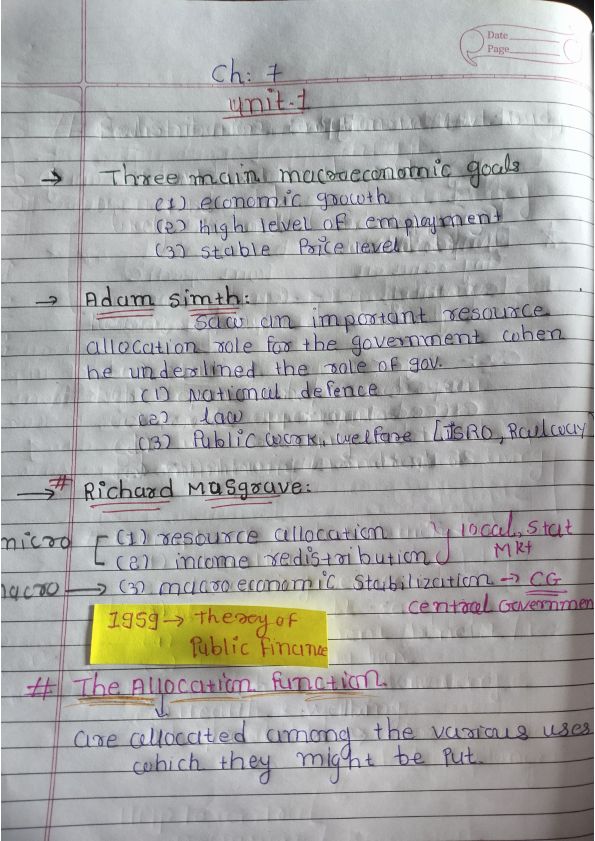 Date
Page
Ch: 7
Unit-1
→ Three main macroeconomic goals
(1) economic growth
(2) high level of employment
(3) stable Price level
→ Adam Simth:
Saw an important resource
allocation role for the government when
he underlined the role of gov.
(1) National defence
(2) law
(3) Public work, welfare [ISRO, Railway
→ # Richard Masgrave:
micro [ (1) resource allocation } local, Stat
(2) income redistribution Mkt
macro → (3) macroeconomic Stabilization → CG
Central Governmen
1959 → theroy of
Public Finance
# The Allocation function
↓
are allocated among the various uses
which they might be Put.